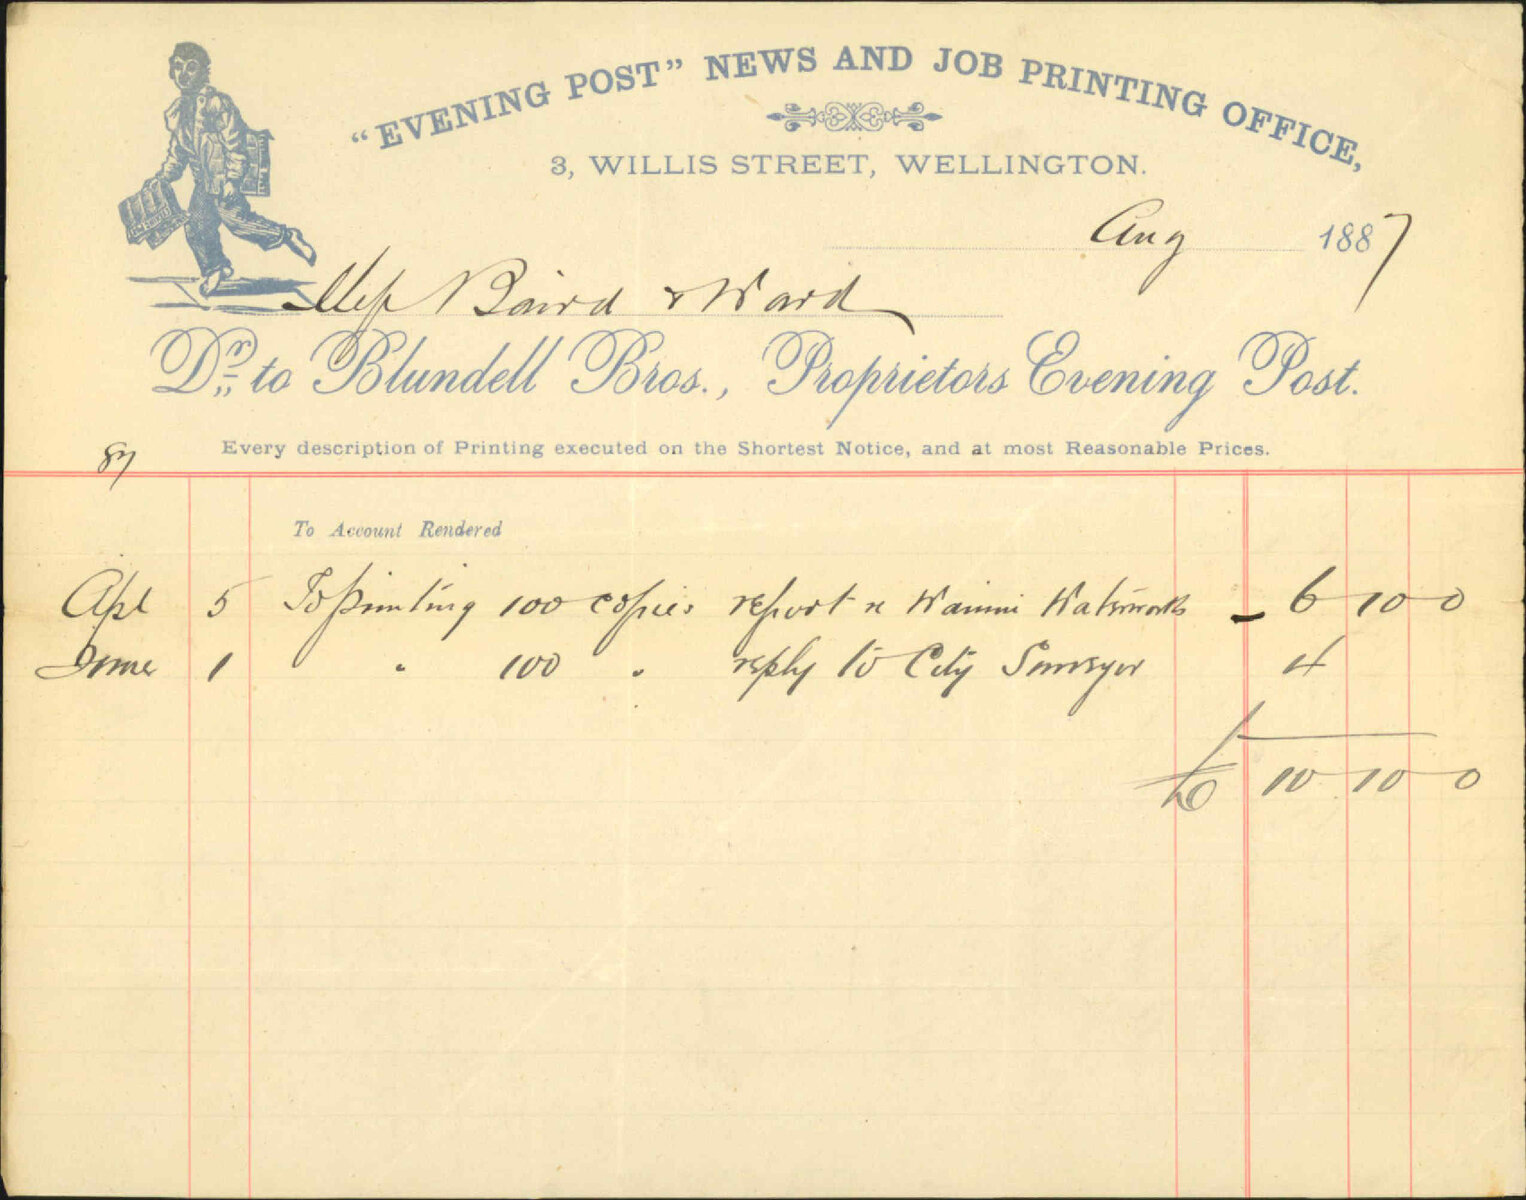 "EVENING POST" NEWS AND JOB PRINTING OFFICE,
3, WILLIS STREET, WELLINGTON.
Aug 1887
Mess Baird & Ward
Dr. to Blundell Bros., Proprietors Evening Post.
Every description of Printing executed on the Shortest Notice, and at most Reasonable Prices.
87
To Account Rendered
Apl 5 To printing 100 copies report re Wainui Waterworks - 6 10 0
June 1 " 100 " reply to City Surveyor 4
£ 10 10 0